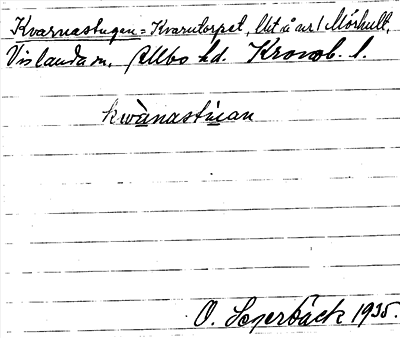 Kvarnastugan = Kvarntorpet, Utt å nr 1 Mörhult,
Vislanda sn, Allbo hd. Kronob. l.
kwànastùan
O. Segerbäck 1935.